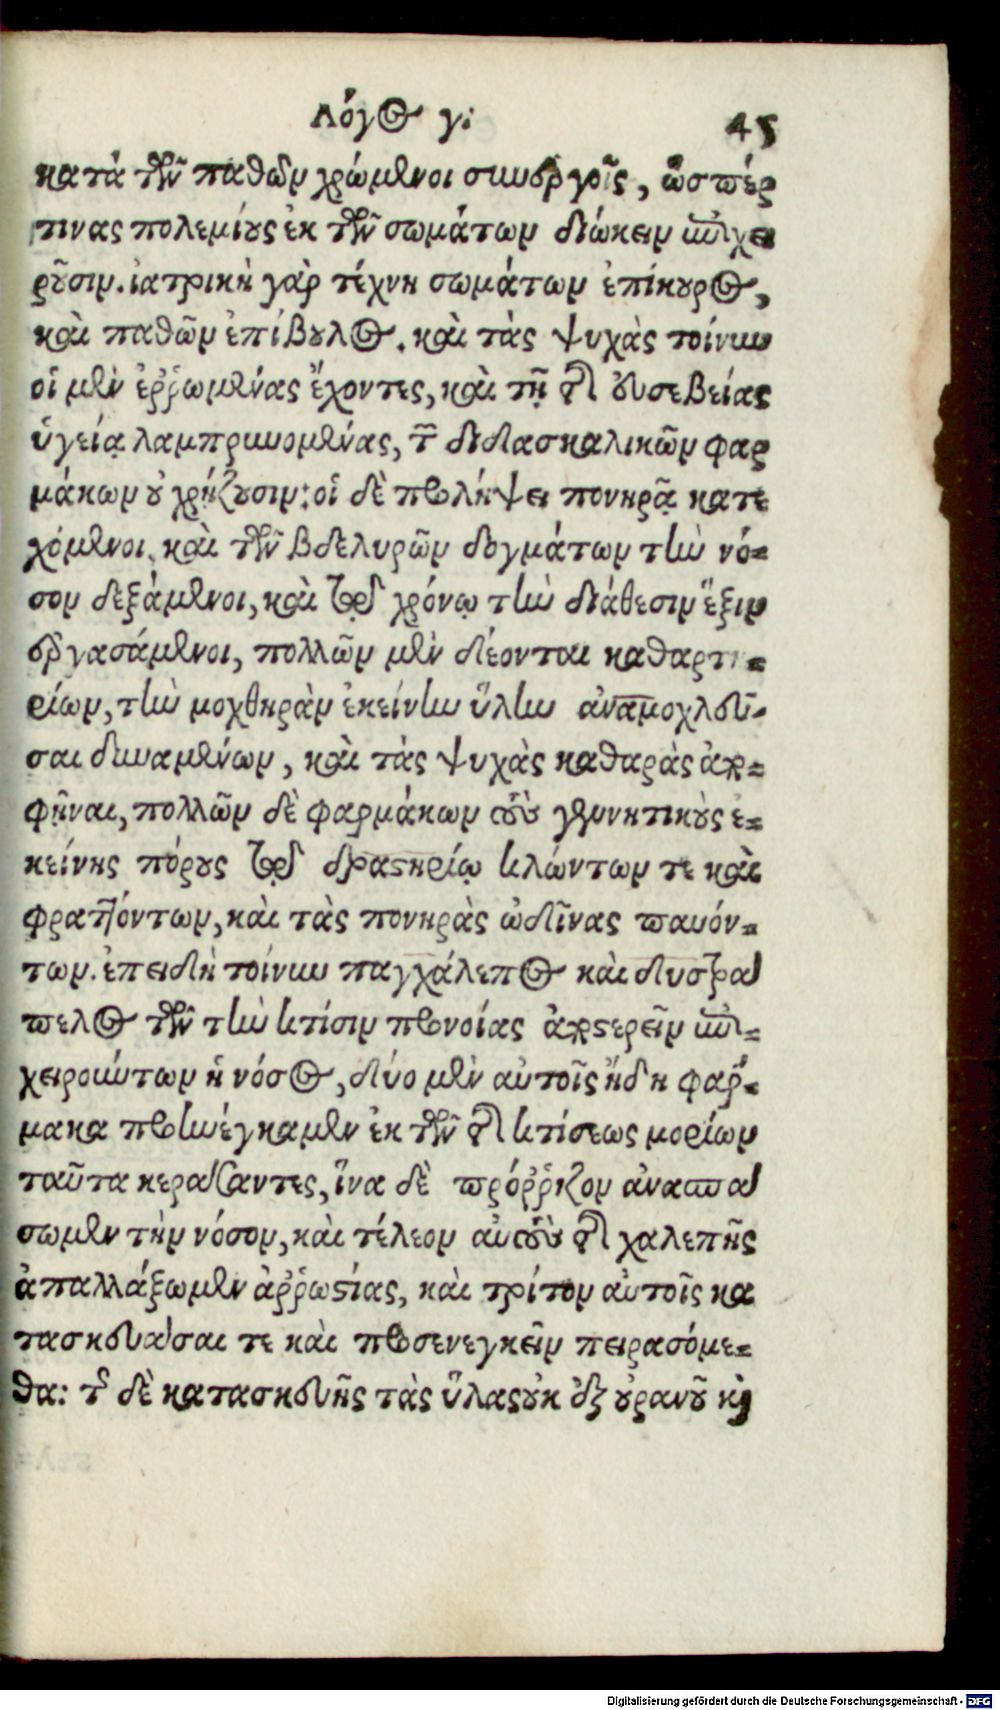 Λόγος γ. 45
κατὰ τῶν παθῶν χρώμενοι συνεργοῖς, ὥσπέρ
τινας πολεμίους ἐκ τῶν σωμάτων διώκειν ἐπιχει
ροῦσιν. ἰατρικὴ γὰρ τέχνη σωμάτων ἐπίκουρος,
καὶ παθῶν ἐπίβουλος. καὶ τὰς ψυχὰς τοίνυν
οἱ μὲν ἐῤῥωμένας ἔχοντες, καὶ τῇ τῆς εὐσεβείας
ὑγείᾳ λαμπρυνομένας, τῶν διδασκαλικῶν φαρ
μάκων οὐ χρῄζουσιν: οἱ δὲ προλήψει πονηρᾷ κατε
χόμενοι, καὶ τῶν βδελυρῶν δογμάτων τὴν νό-
σον δεξάμενοι, καὶ τῷ χρόνῳ τὴν διάθεσιν ἕξιν
ἐργασάμενοι, πολλῶν μὲν δέονται καθαρτη-
ρίων, τὴν μοχθηρὰν ἐκείνην ὕλην ἀναμοχλεῦ-
σαι δυναμένων, καὶ τὰς ψυχὰς καθαρὰς ἀπο-
φῆναι, πολλῶν δὲ φαρμάκων τοὺς γεννητικοὺς ἐ-
κείνης πόρους τῷ δραστηρίῳ κλώντων τε καὶ
φραττόντων, καὶ τὰς πονηρὰς ὠδῖνας παυόν-
των. ἐπειδὴ τοίνυν παγχάλεπος καὶ δυστρά
πελος τῶν τὴν κτίσιν προνοίας ἀποστερεῖν ἐπι-
χειρούντων ἡ νόσος, δύο μὲν αὐτοῖς ἤδη φάρ-
μακα προσηνέγκαμεν ἐκ τῶν τῆς κτίσεως μορίων
ταῦτα κεράσαντες, ἵνα δὲ πρόῤῥιζον ἀνασπά
σωμεν τὴν νόσον, καὶ τέλεον αὐτοὺς τῆς χαλεπῆς
ἀπαλλάξωμεν ἀῤῥωστίας, καὶ τρίτον αὐτοῖς κα
τασκευάσαι τε καὶ προσενεγκεῖν πειρασόμε-
θα: τῆς δὲ κατασκευῆς τὰς ὕλας οὐκ ἐξ οὐρανοῦ καὶ
Digitalisierung gefördert durch die Deutsche Forschungsgemeinschaft - DFG